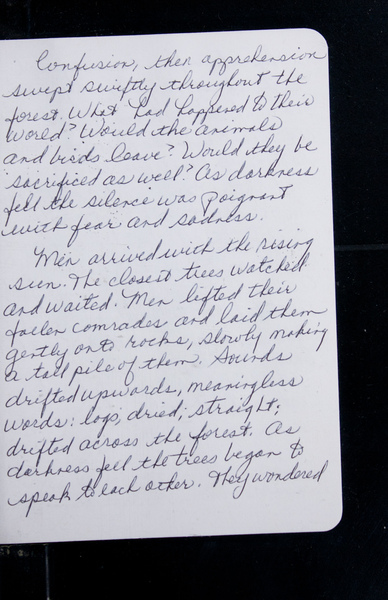 Confusion, then apprehension
swept swiftly throughout the
forest. What had happened to their
world? Would the animals
and birds leave? Would they be
sacrificed as well? As darkness
fell the silence was poignant
with fear and sadness.
Men arrived with the rising
sun. The closest trees watched
and waited. Men lifted their
fallen comrades and laid them
gently onto rocks, slowly making
a tall pile of them. Sounds
drifted upwards, meaningless
words: logs, dried, straight;
drifted across the forest. As
darkness fell the trees began to
speak to each other. They wondered